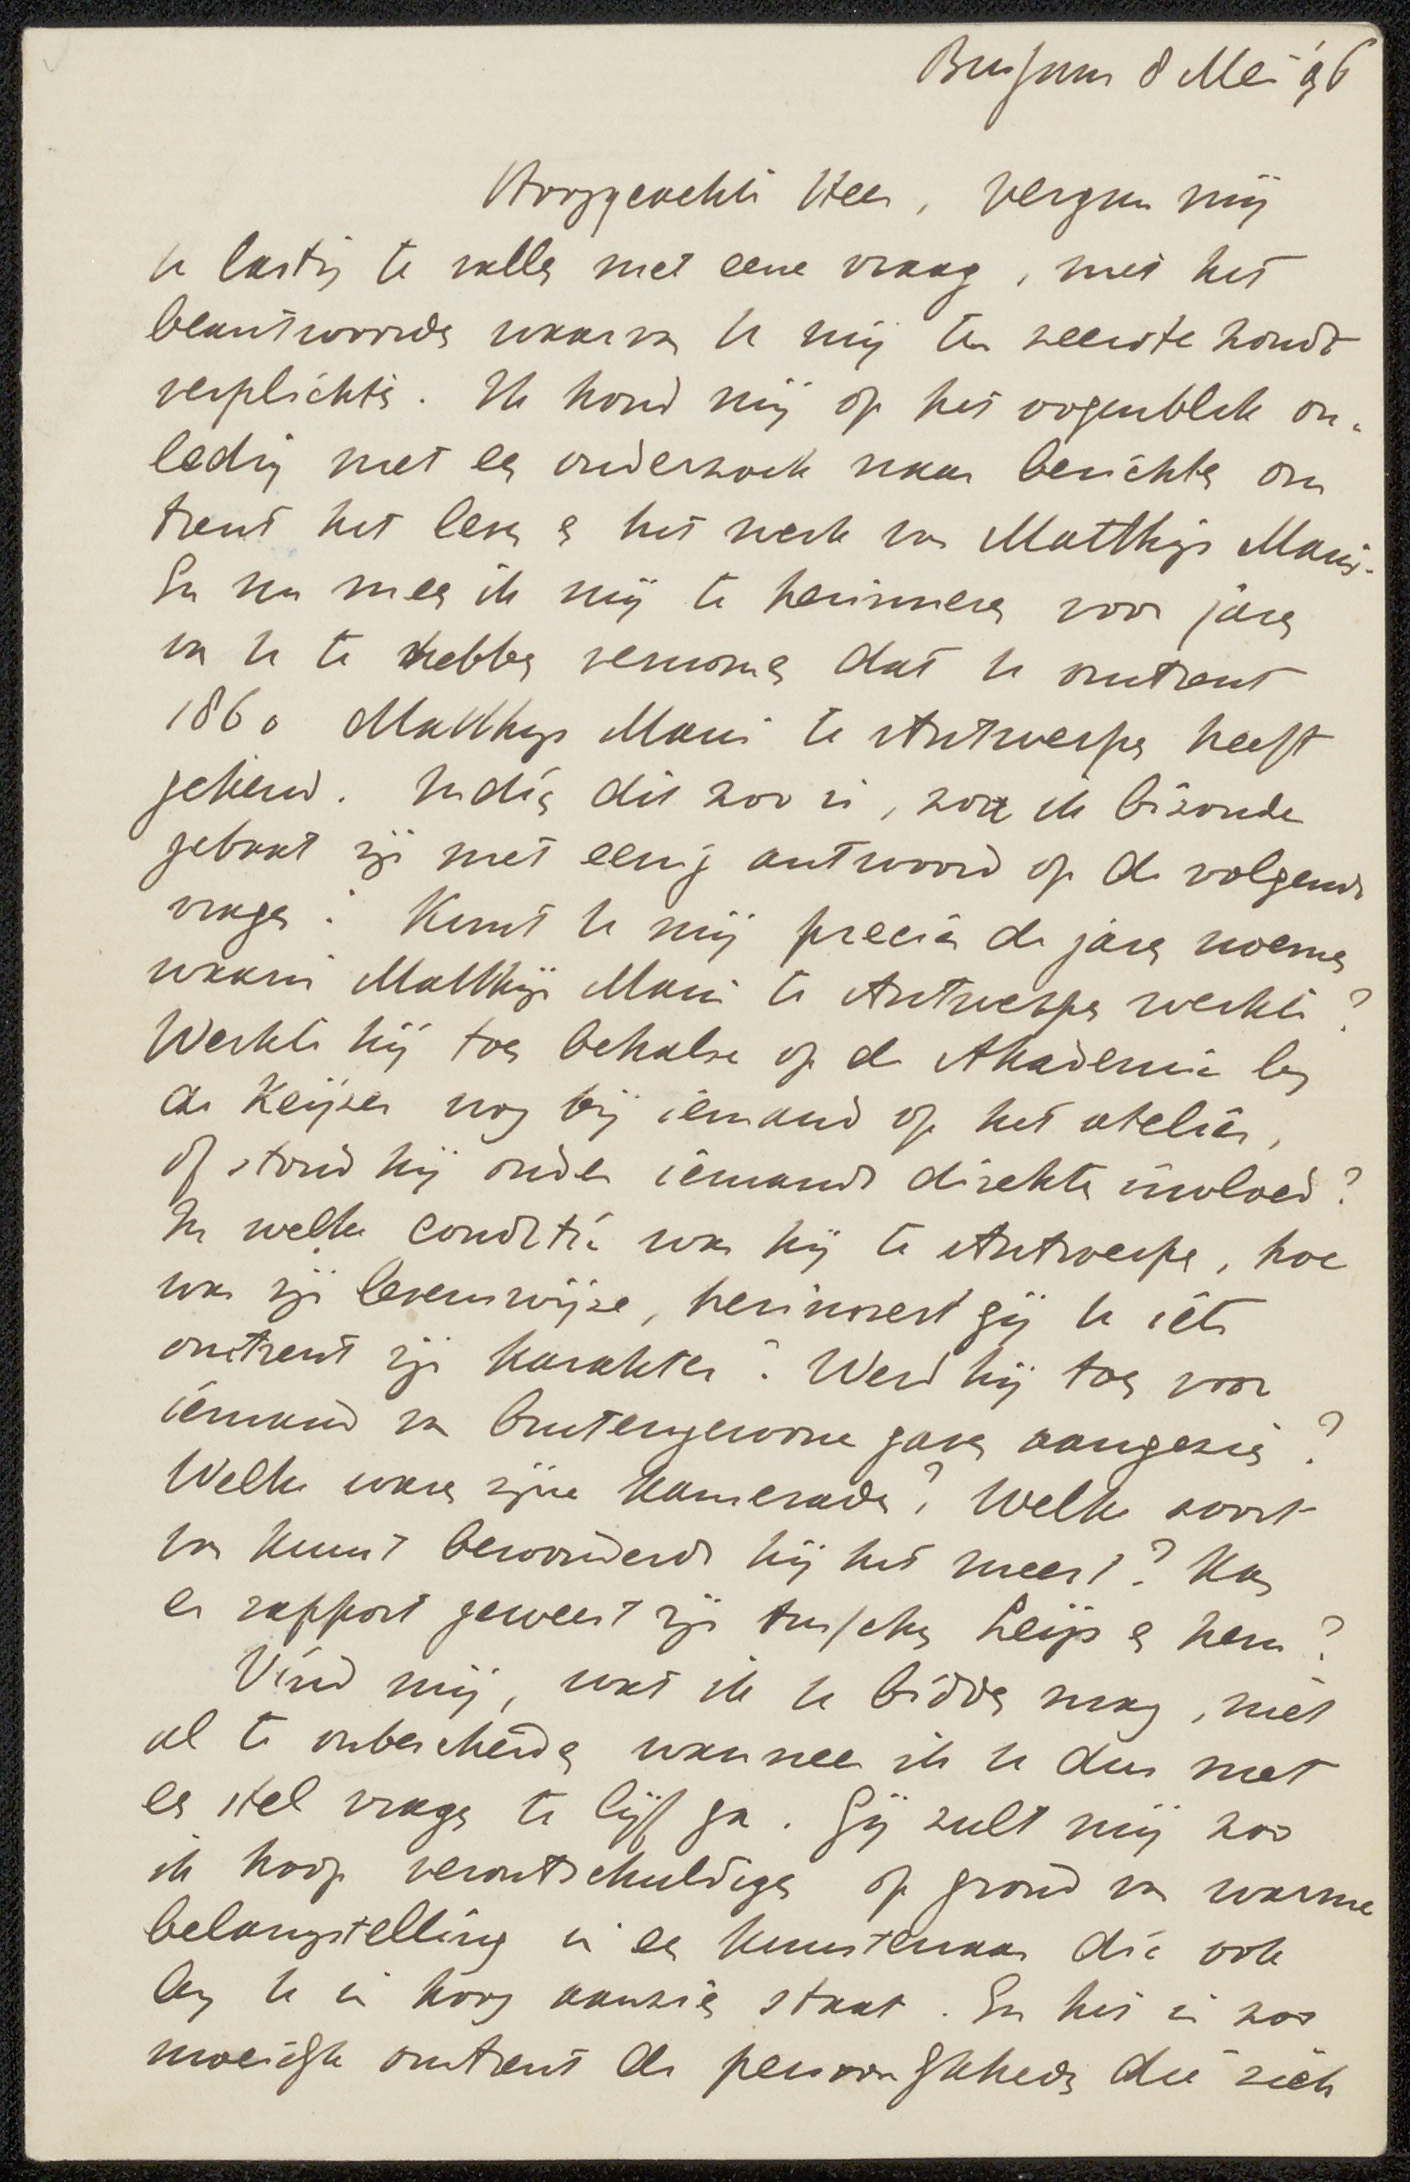 Bussum 8 Mei '96
Hooggeachte Heer, vergun mij
U lastig te vallen met eene vraag, met het
beantwoorden waarvan U mij ten zeerste zoudt
verplichten. Ik houd mij op het oogenblik on-
ledig met een onderzoek naar berichten om
trent het leven en het werk van Matthijs Maris.
En nu meen ik mij te herinneren voor jaren
van U te hebben vernomen dat U omtrent
1860 Matthijs Maris te Antwerpen heeft
gekend. Indien dit zoo is, zou ik bizonder
gebaat zijn met eenig antwoord op de volgende
vragen: Kunt U mij precies de jaren noemen
waarin Matthijs Maris te Antwerpen werkte?
Werkte hij toen behalve op de Akademie bij
de Keijzer nog bij iemand op het atelier,
of stond hij onder iemands direkten invloed?
In welke conditie was hij te Antwerpen, hoe
was zijn levenswijze, herinnert gij U iets
omtrent zijn karakter? Werd hij toen voor
iemand van buitengewone gaven aangezien?
Welke waren zijne kameraden? Welke soort
van kunst bewonderde hij het meest? Kan
er rapport geweest zijn tusschen Leijs en hem?
Vind mij, wat ik U bidden mag, niet
al te onbescheiden wanneer ik U dus met
een stel vragen te lijf ga. Gij zult mij zoo
ik hoop verontschuldigen op grond van warme
belangstelling in een kunstenaar die ook
bij U in hoog aanzien staat. En het is zoo
moeielijk omtrent de persoonlijkheden die zich